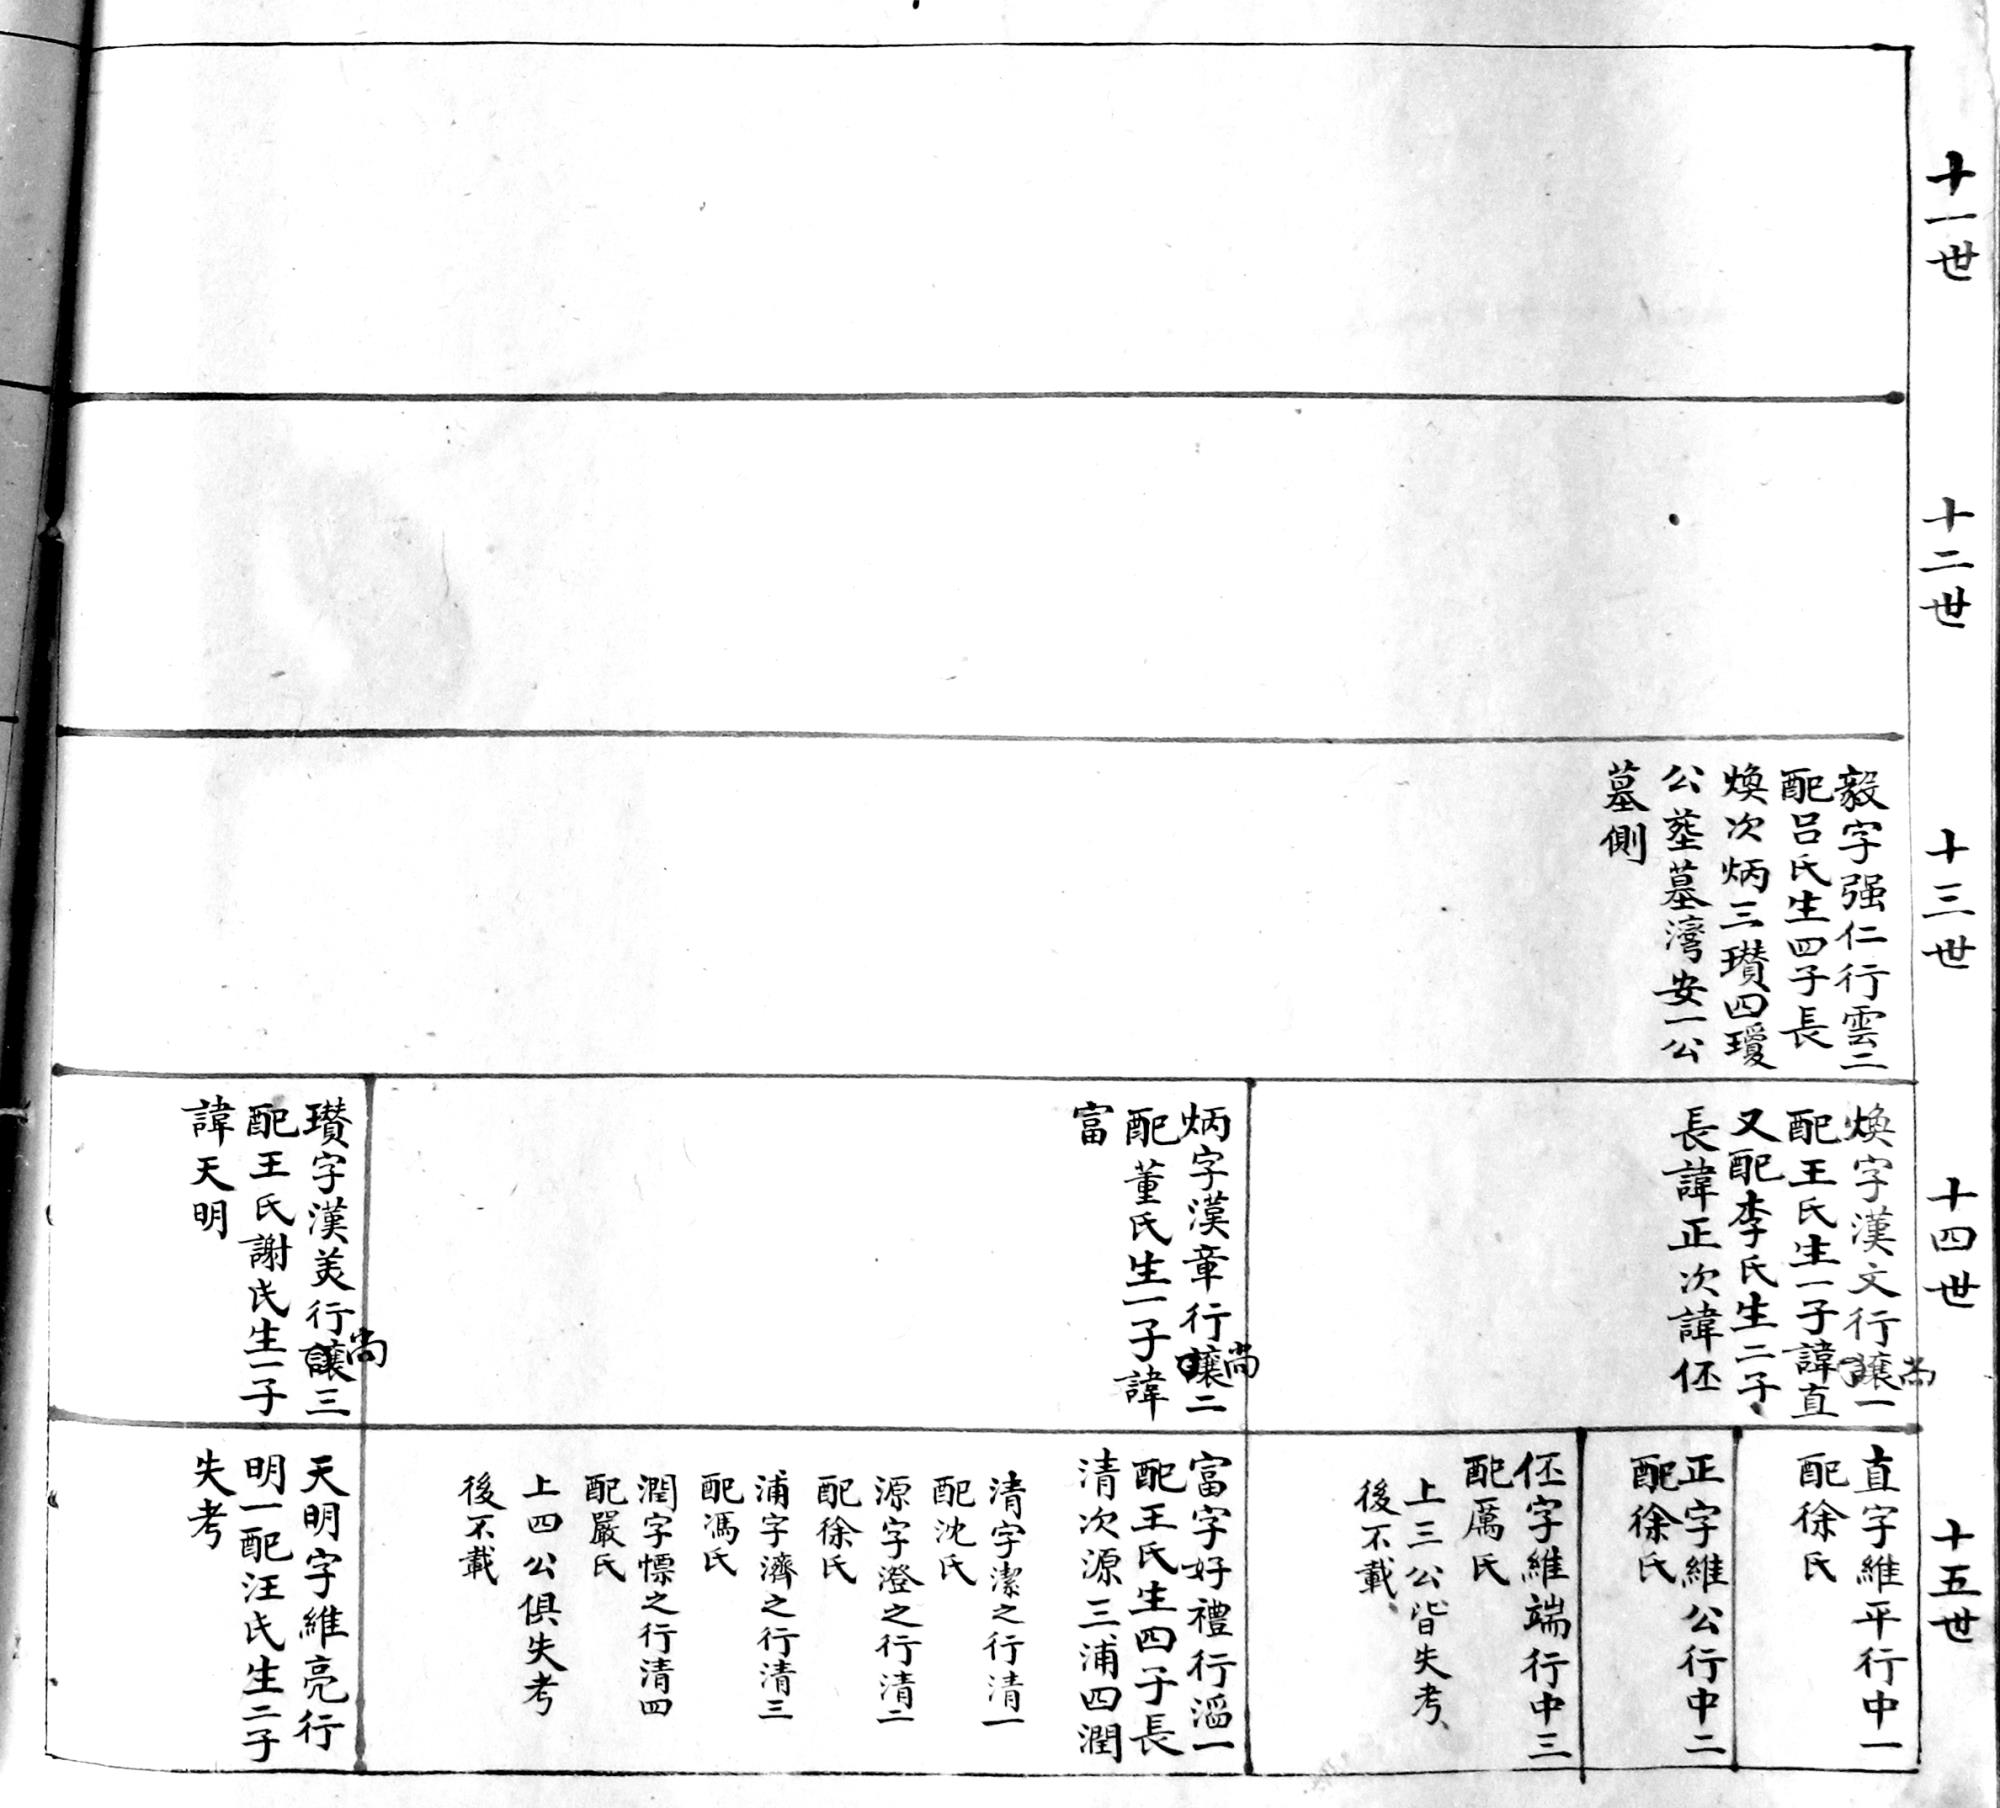 十一世
十二世
十三世
毅字强仁行雲二
配吕氏生四子長
煥次炳三瓚四瓊
公塟墓灣安一公
墓側
十四世
煥字漢文行讓一
尚
配王氏生一子諱直
又配李氏生二子
長諱正次諱伾
炳字漢章行讓二
尚
配董氏生一子諱
富
瓚字漢美行讓三
尚
配王氏謝氏生一子
諱天明
十五世
直字維平行中一
配徐氏
正字維公行中二
配徐氏
伾字維端行中三
配厲氏
上三公皆失考
後不載
富字好禮行滔一
配王氏生四子長
清次源三浦四潤
清字潔之行清一
配沈氏
源字澄之行清二
配徐氏
浦字濟之行清三
配馮氏
潤字慓之行清四
配嚴氏
上四公俱失考
後不載
天明字維亮行
明一配汪氏生二子
失考